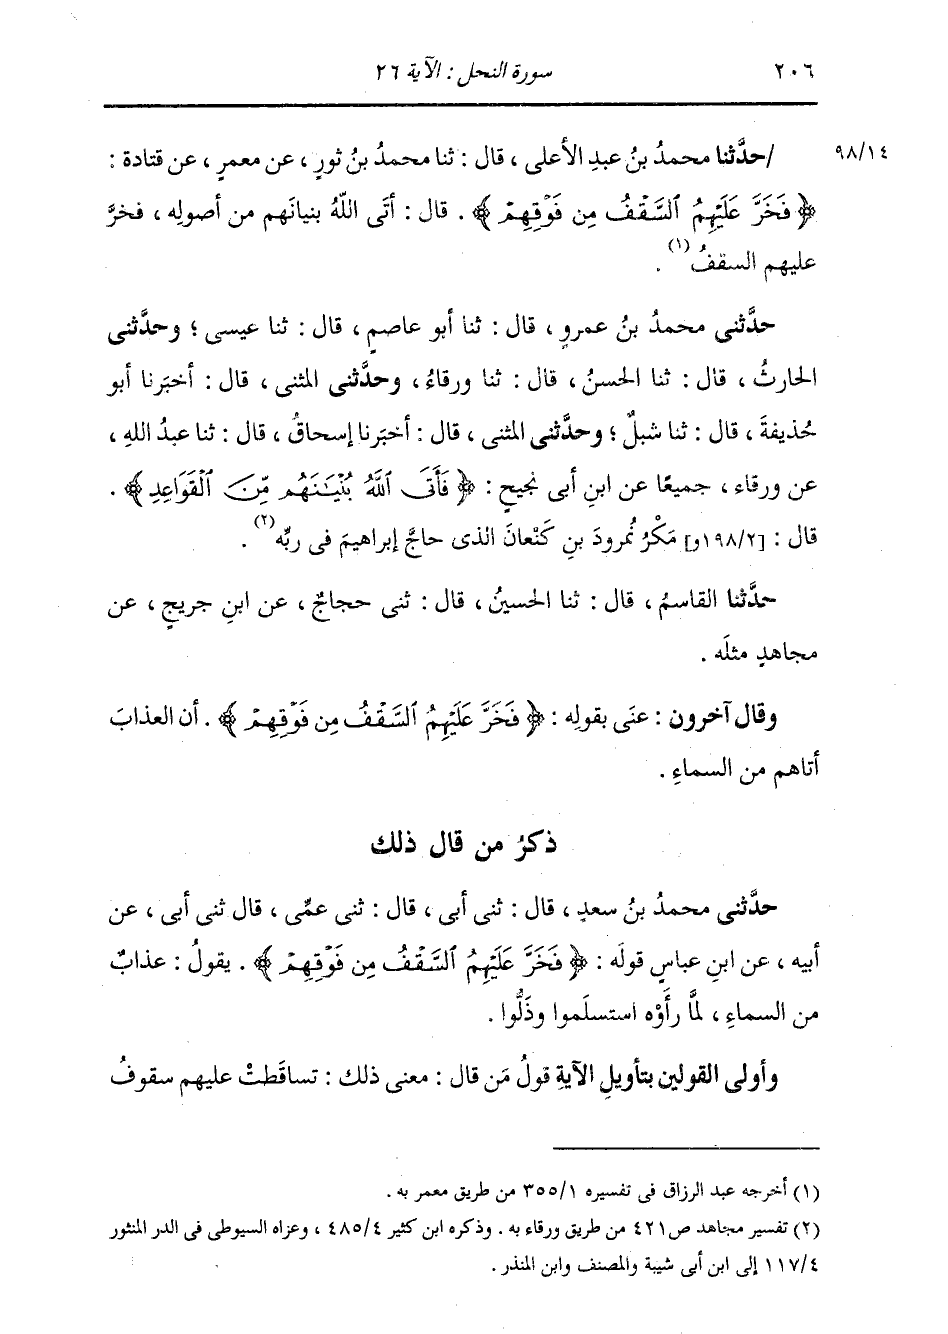 ٢٠٦ سورة النحل : الآية ٢٦
٩٨/١٤ /حدَّثنا محمدُ بنُ عبدِ الأعلى ، قال : ثنا محمدُ بنُ ثورٍ ، عن معمرٍ ، عن قتادة :
﴿ فَخَرَّ عَلَيْهِمُ ٱلسَّقْفُ مِن فَوْقِهِمْ ﴾ . قال : أتَى اللَّهُ بنيانَهم من أصولِه ، فخرَّ
عليهم السقفُ(١) .
حدَّثنى محمدُ بنُ عمرٍو ، قال : ثنا أبو عاصمٍ ، قال : ثنا عيسى ؛ وحدَّثنى
الحارثُ ، قال : ثنا الحسنُ ، قال : ثنا ورقاءُ ، وحدَّثنى المثنى ، قال : أخبَرنا أبو
حُذيفةَ ، قال : ثنا شبلٌ ؛ وحدَّثنى المثنى ، قال : أخبَرنا إسحاقُ ، قال : ثنا عبدُ اللهِ ،
عن ورقاء ، جميعًا عن ابنِ أبى نجيحٍ : ﴿ فَأَتَى ٱللَّهُ بُنْيَـٰنَهُم مِّنَ ٱلْقَوَاعِدِ ﴾ .
قال : [١٩٨/٢و] مَكْرُ نُمرودَ بنِ كَنْعانَ الذى حاجَّ إبراهيمَ فى ربِّه(٢) .
حدَّثنا القاسمُ ، قال : ثنا الحسينُ ، قال : ثنى حجاجٌ ، عن ابنِ جريجٍ ، عن
مجاهدٍ مثلَه .
وقال آخرون : عنَى بقولِه : ﴿ فَخَرَّ عَلَيْهِمُ ٱلسَّقْفُ مِن فَوْقِهِمْ ﴾ . أن العذابَ
أتاهم من السماءِ .
ذكرُ من قال ذلك
حدَّثنى محمدُ بنُ سعدٍ ، قال : ثنى أبى ، قال : ثنى عمِّى ، قال ثنى أبى ، عن
أبيه ، عن ابنِ عباسٍ قولَه : ﴿ فَخَرَّ عَلَيْهِمُ ٱلسَّقْفُ مِن فَوْقِهِمْ ﴾ . يقولُ : عذابٌ
من السماءِ ، لمَّا رأَوْه استسلَموا وذَلُّوا .
وأولى القولين بتأويلِ الآيةِ قولُ مَن قال : معنى ذلك : تساقَطتْ عليهم سقوفُ
(١) أخرجه عبد الرزاق فى تفسيره ٣٥٥/١ من طريق معمر به .
(٢) تفسير مجاهد ص٤٢١ من طريق ورقاء به . وذكره ابن كثير ٤٨٥/٤ ، وعزاه السيوطى فى الدر المنثور
١١٧/٤ إلى ابن أبى شيبة والمصنف وابن المنذر .